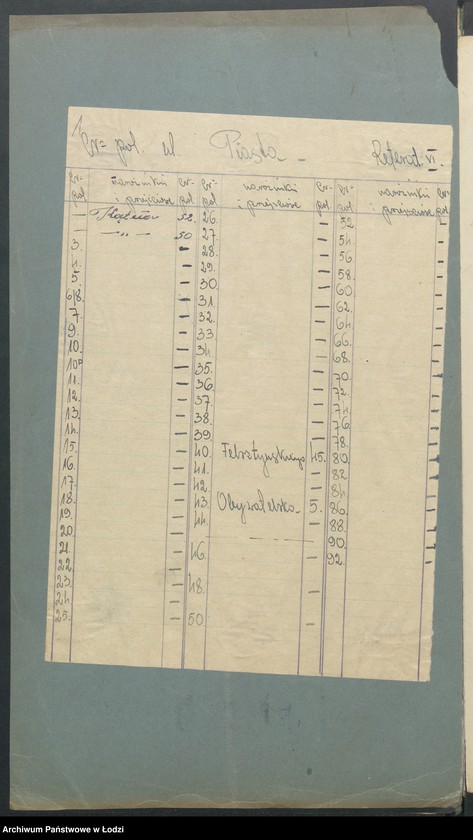 Nr= pol. ul. Piasta - Referat VI.
Nr= pol. narożniki i przejścia Nr- pol. Nr- pol. narożniki i przejścia Nr- pol. Nr- pol. narożniki i przejścia Nr- pol.
— 52. 26. — 52 —
— —„— 50 27. — 54 —
3. — 28. — 56 —
4. — 29. — 58. —
5. — 30. — 60 —
6/8. — 31. — 62. —
7. — 32. — 64. —
9. — 33. — 66. —
10. — 34. — 68. —
10a — 35. — 70. —
11. — 36. — 72. —
12. — 37. — 74. —
13. — 38. — 76 —
14. — 39. — 78. —
15. — 40. Felsztyńskiego 45. 80. —
16. — 41. — 82. —
17. — 42. — 84. —
18. — 43. Obywatelska 5. 86. —
19. — 44. — 88. —
20. — 90. —
21. — 46. — 92. —
22. —
23. — 48. —
24. —
25. — 50. —
Archiwum Państwowe w Łodzi